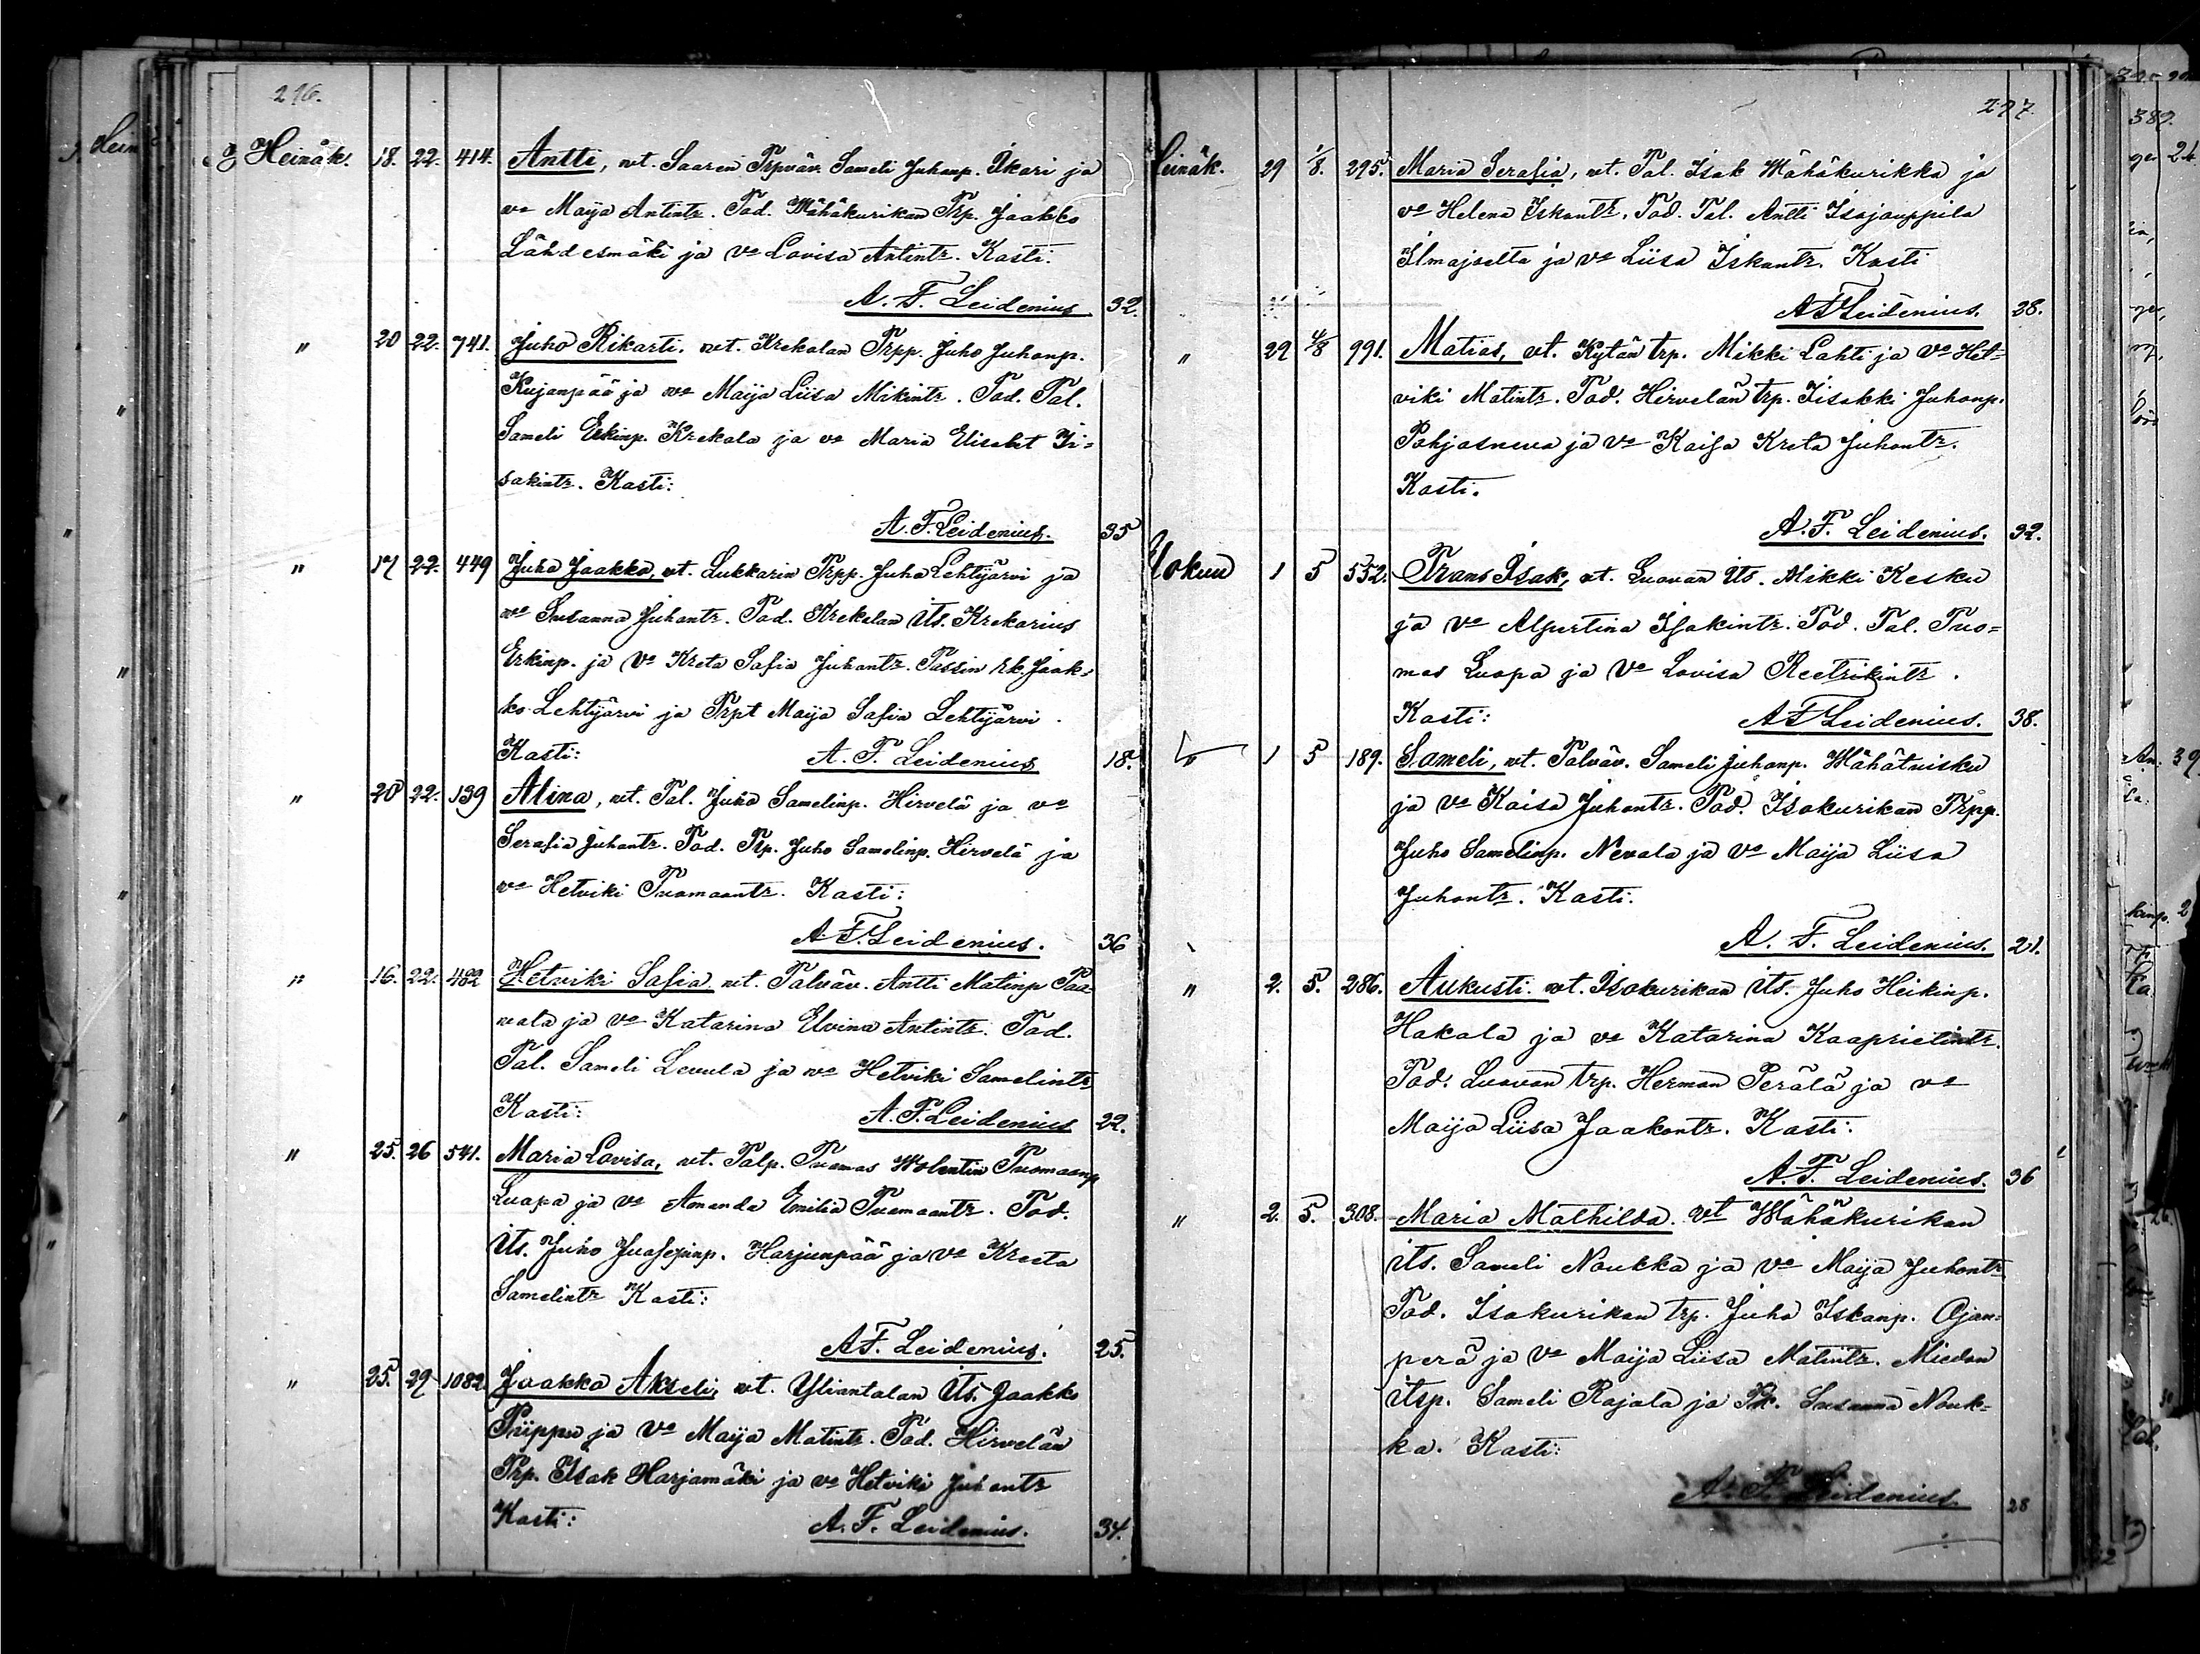 296.
Heinäk. 18. 22. 414. Antti, vt. Saaren Trpväv. Sameli Juhanp. Ikari ja
va Maija Antintr. Tod. Wähäkurikan Trp. Jaakko
Lähdesmäki ja Va Lovisa Antintr. Kasti:
A. F. Leidenius 32.
" 20 22. 741. Juho Rikarti. vt. Krekolan Trpp. Juho Juhanp.
Kujanpää ja va Maija Liisa Mikintr. Tod. Tal.
Sameli Erkinp. Krekola ja va Maria Elisabet Ii=
sakintr. Kasti:
A. F. Leidenius. 35
" 17 22. 449 Juha Jaakko, vt. Lukkarin Trpp. Juha Lehtijärvi ja
va Susanna Juhantr. Tod. Krekolan Its. Krekorius
Erkinp. ja Va Kreta Safia Juhantr. Passin rk. Jaak=
ko Lehtijärvi ja Trpt Maija Safia Lehtijärvi.
Kasti: A. F. Leidenius 18.
" 20 22. 139 Alina, vt. Tal. Juha Samelinp. Hirvelä ja va
Serafia Juhantr. Tod. Trp. Juho Samelinp. Hirvelä ja
va Hetviki Tuomaantr. Kasti:
A. F. Leidenius. 36
" 16. 22. 482 Hetviki Safia vt. Talväv. Antti Matinp Paa=
vola ja va Katarina Elvina Antintr. Tod.
Tal. Sameli Levula ja va Hetviki Samelintr
Kasti: A. F. Leidenius 22.
" 25. 26 541. Maria Lovisa, vt. Talp. Tuomas Wolentin Tuomaanp
Luopa ja va Amanda Emilia Tuomaantr. Tod.
Its. Juho Juosepinp. Harjunpää ja Va Kreeta
Samelintr Kasti:
A F. Leidenius. 25.
" 25. 29 1082. Jaakko Akseli, vt. Yliantalan Its. Jaakko
Piippu ja Va Maija Matintr. Tod. Hirvelän
Trp. Isak Harjamäki ja va Hetviki Juhantr
Kasti: A. F. Leidenius. 34.
297.
Heinäk. 29 1/8. 295. Maria Serafia, vt. Tal. Isak Wähäkurikka ja
va Helena Iskantr. Tod. Tal. Antti Isojauppila
Ilmajoelta ja va Liisa Iskantr. Kasti
A F Leidenius. 28.
" 29 4/8 991. Matias, vt. Kytän trp. Mikki Lahti ja Va Het=
viki Matintr. Tod. Hirvelän trp. Iisakki Juhanp.
Pohjasneva ja Va Kaisa Kreta Juhantr.
Kasti.
A. F. Leidenius. 32.
Elokuu 1 5 552. Frans Isak, vt. Luovan Its. Mikki Kesku
ja va Alpertina Isakintr. Tod. Tal. Tuo=
mas Luopa ja Va Lovisa Reetrikintr.
Kasti: A F Leidenius. 38.
1 5 189. Sameli, vt. Talväv. Sameli Juhanp. Wähätuisku
ja va Kaisa Juhantr. Tod. Isokurikan Trpp.
Juho Samelinp. Nevala ja Va Maija Liisa
Juhantr. Kasti.
A. F. Leidenius. 21.
" 2. 5. 286. Aukusti. vt. Isokurikan Its. Juho Heikinp.
Hakala ja va Katarina Kaaprielintr.
Tod. Luovan trp. Herman Perälä ja va
Maija Liisa Jaakontr. Kasti:
A. F. Leidenius. 36
" 2. 5. 308. Maria Mathilda. vt Wähäkurikan
its. Sameli Noukka ja Va Maija Juhontr
Tod. Isokurikan trp. Juho Iskanp. Ojan=
perä ja Va Maija Liisa Matintr. Miedon
itsp. Sameli Rajala ja Susanna Nouk=
ka. Kasti:
A. F. Leidenius. 28